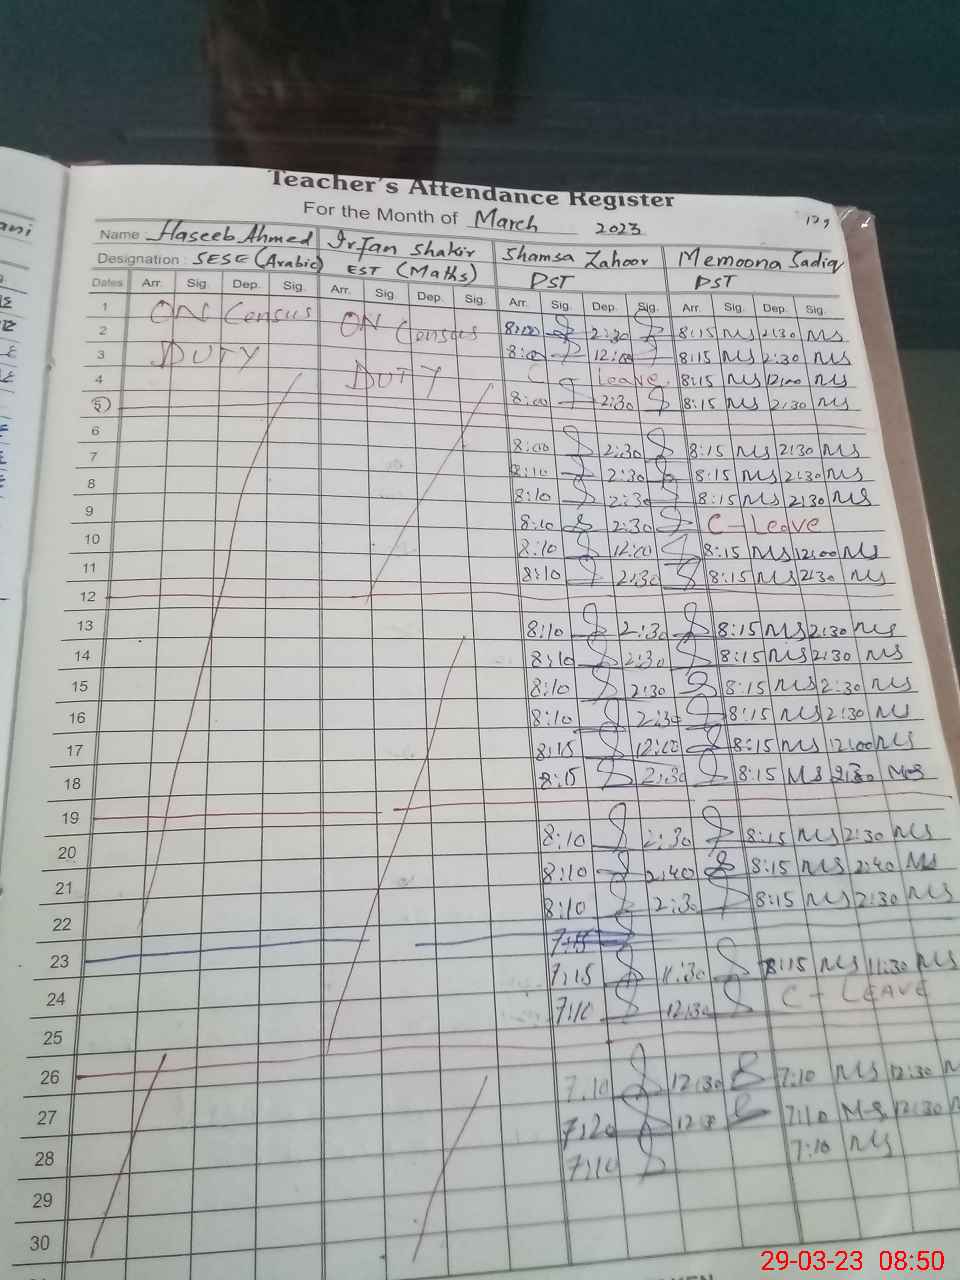 Teacher's Attendance Register
For the Month of March 2023
Name Haseeb Ahmed Irfan Shakir Shamsa Zahoor Memoona Sadiq
Designation : SESE (Arabic) EST (Maths) PST PST
Dates Arr. Sig. Dep. Sig. Arr. Sig. Dep. Sig. Arr. Sig. Dep. Sig. Arr. Sig. Dep. Sig.
1 ON Census ON Census 8:00 2:30 8:15 MS 2:30 MS
2 DUTY DUTY 8:00 12:00 8:15 MS 2:30 MS
3 C Leave 8:15 MS 12:00 MS
4 8:00 2:30 8:15 MS 2:30 MS
5
6 8:00 2:30 8:15 MS 2:30 MS
7 8:10 2:30 8:15 MS 2:30 MS
8 8:10 2:30 8:15 MS 2:30 MS
9 8:10 2:30 C-Leave
10 8:10 12:00 8:15 MS 12:00 MS
11 8:10 2:30 8:15 MS 2:30 MS
12
13 8:10 2:30 8:15 MS 2:30 MS
14 8:10 2:30 8:15 MS 2:30 MS
15 8:10 2:30 8:15 MS 2:30 MS
16 8:10 2:30 8:15 MS 2:30 MS
17 8:15 12:00 8:15 MS 12:00 MS
18 8:15 2:30 8:15 MS 2:30 MS
19
20 8:10 2:30 8:15 MS 2:30 MS
21 8:10 2:40 8:15 MS 2:40 MS
22 8:10 2:30 8:15 MS 2:30 MS
23
24 7:15 11:30 8:15 MS 11:30 MS
25 7:10 12:30 C-LEAVE
26
27 7:10 12:30 7:10 MS 12:30
28 7:20 12:30 7:10 MS 12:30
29 7:10 7:10 MS
30
29-03-23 08:50